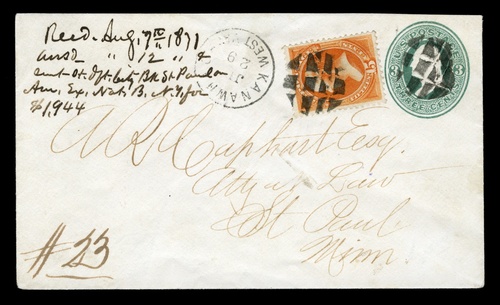 Recd. Aug. 7th 1871
ansd " 12 " &
sent Dft. City Bk St. Paul on
Am. Ex. Nat. B. N.Y. for
$1,944
KANAWHA
WEST
29
U.S. POSTAGE
THREE CENTS
3
A R Capehart Esq.
Atty at Law
St. Paul
Minn.
#23